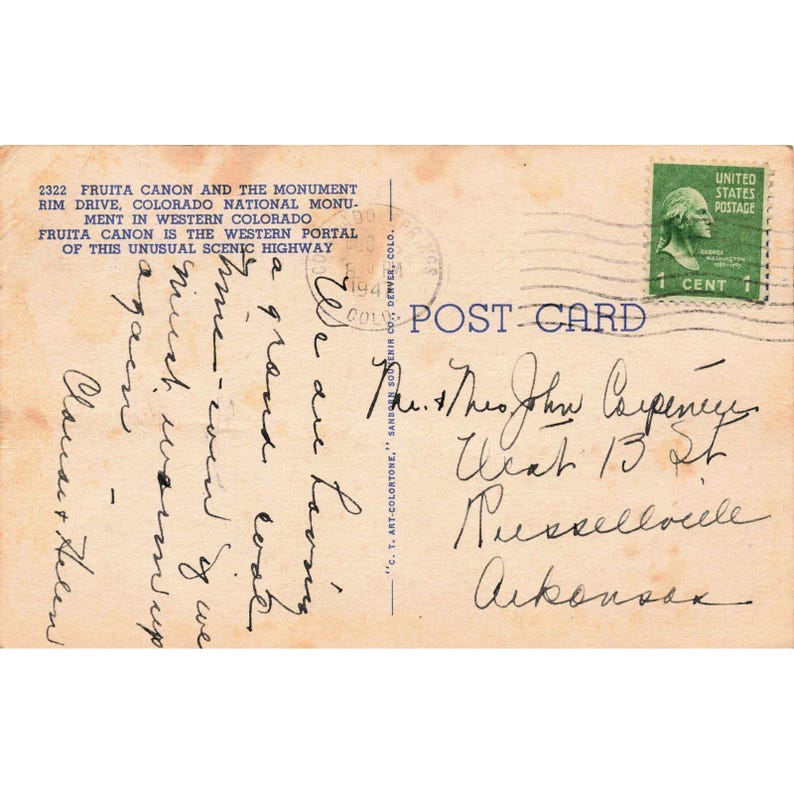 2322 FRUITA CANON AND THE MONUMENT
RIM DRIVE, COLORADO NATIONAL MONU-
MENT IN WESTERN COLORADO
FRUITA CANON IS THE WESTERN PORTAL
OF THIS UNUSUAL SCENIC HIGHWAY
We are having
a grand cool
time - even if we
must warm up
again
Claude & Helen
"C. T. ART-COLORTONE," SANBORN SOUVENIR CO., DENVER, COLO.
SPRINGS
PM
194
COLO.
UNITED
STATES
POSTAGE
GEORGE
WASHINGTON
1789-1797
1 CENT 1
POST CARD
Mr. & Mrs John Carpenter
West 13 St
Russellville
Arkansas